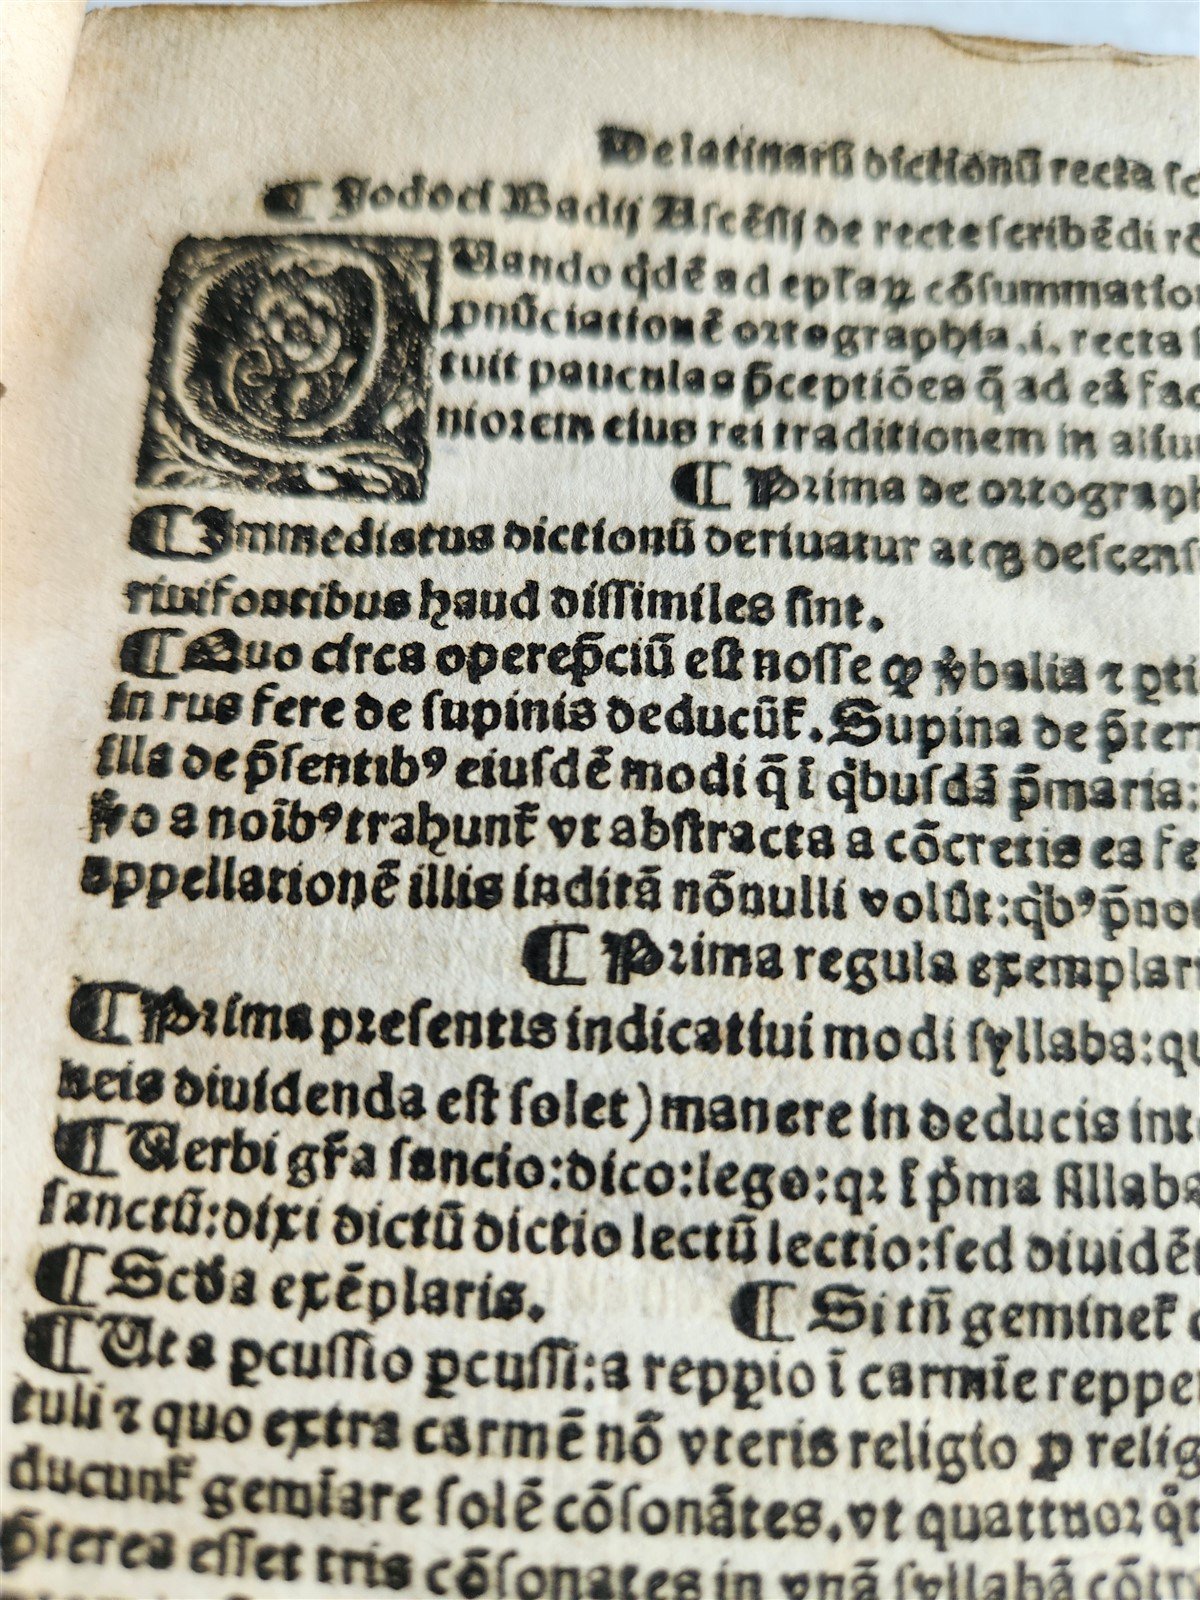 De latinarū dictionū recta sc
¶ Jodoci Badij Ascēsij de recte scribēdi
Uando qͥdē ad ep̄laꝝ cōsummatio
ꝓnūciationē ortographia .i. recta
tuit pauculas p̄ceptiōes q̄ ad eā fac
niorem eius rei traditionem in
¶ Prima de ortograph
¶ Immediatus dictionū deriuatur atqꝫ descens
riuifontibus haud dissimiles sint.
¶ Quo circa operep̄ciū est nosse ꝙ v̓balia ⁊ ꝑti
in rus fere de supinis deducūt̄. Supina de p̄ter
illa de p̄sentibꝰ eiusdē modi q̄ ī qͥbusdā p̄maria:
v̓o a noībꝰ trahunt̄ vt abstracta a cōcretis ea fe
appellationē illis inditā nōnulli volūt: qͥbꝰ p̄no
¶ Prima regula exemplar
¶ Prima presentis indicatiui modi syllaba: qu
neis diuidenda est solet) manere in deducis int
¶ Uerbi gr̄a sancio: dico: lego: qꝛ ī pͥma sillaba
sanctū: dixi dictū dictio lectū lectio: sed diuidē
¶ Scd̓a exēplaris. ¶ Si tn̄ geminet̄
¶ Ut a ꝑcussio ꝑcussi: a repꝑio ī carmīe reppe
tuli ⁊ quo extra carmē nō vteris religio ꝓ relig
ducunt̄ gemīare solē cōsonātes. vt quattuor
p̄terea esset tris cōsonates in vnā syllabā cōtr